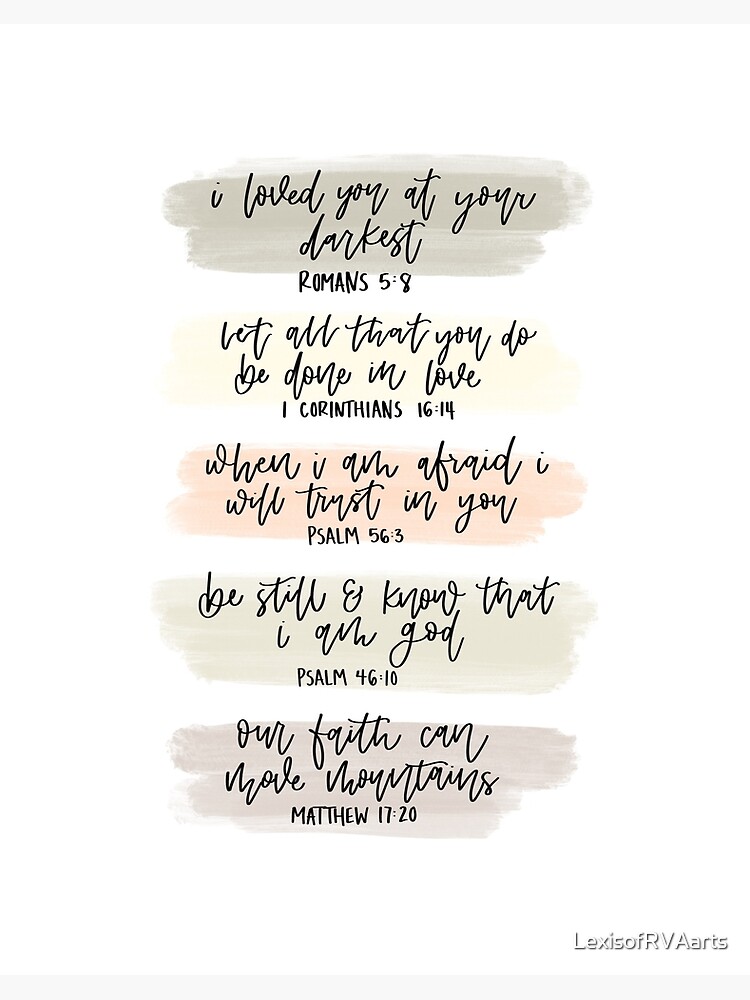 i loved you at your
darkest
ROMANS 5:8
let all that you do
be done in love
1 CORINTHIANS 16:14
when i am afraid i
will trust in you
PSALM 56:3
be still & know that
i am god
PSALM 46:10
our faith can
move mountains
MATTHEW 17:20
LexisofRVAarts